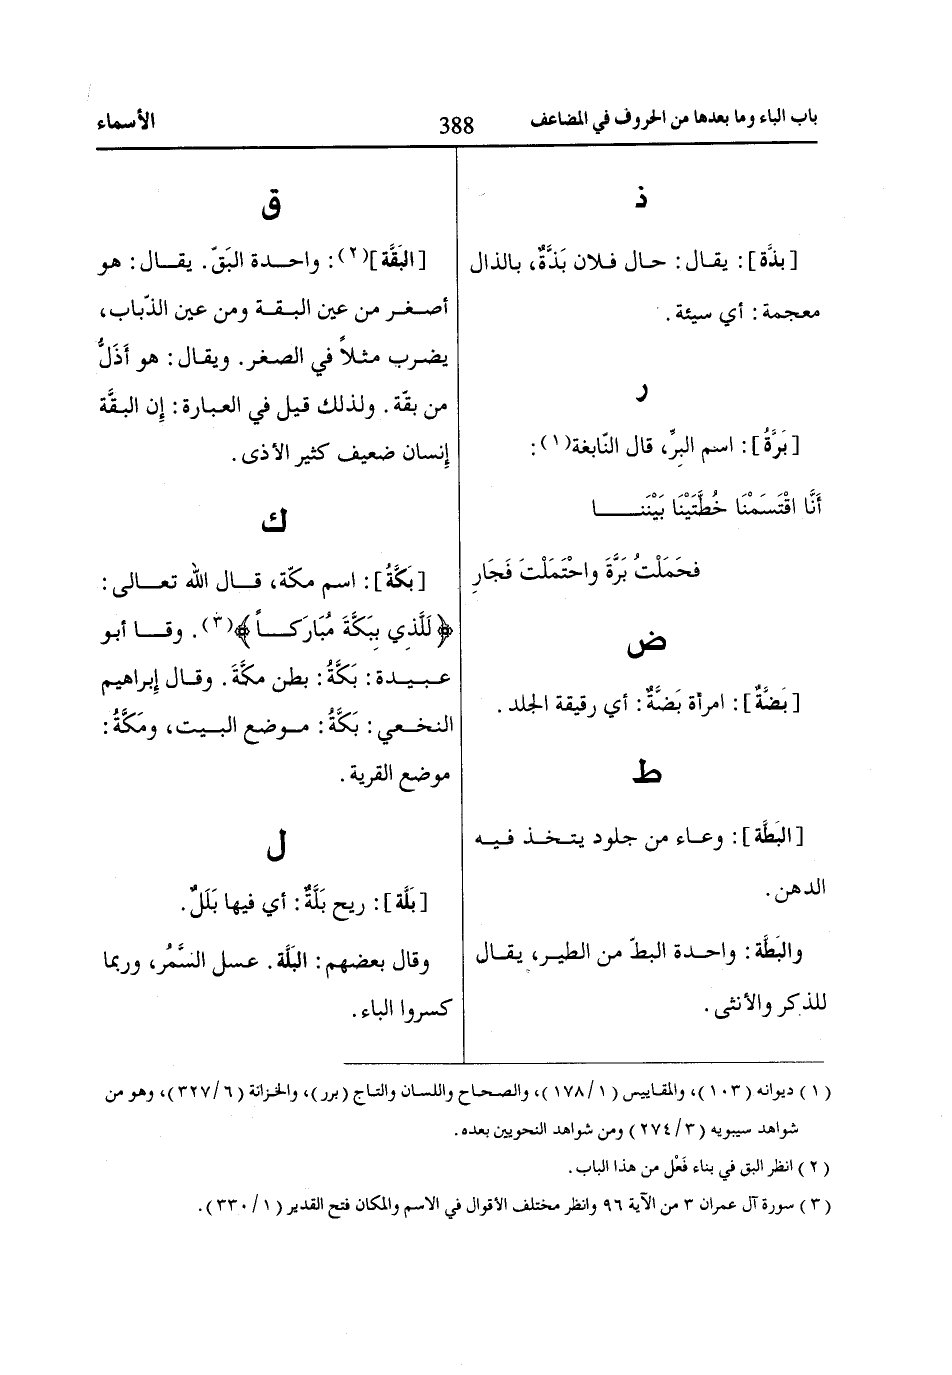 باب الباء وما بعدها من الحروف في المضاعف
388
الأسماء
ذ
[بذَّة]: يقال: حال فلان بَذَّةٌ، بالذال
معجمة: أي سيئة.
ر
[بَرَّةُ]: اسم البرِّ، قال النّابغة(١):
أنَّا اقْتَسَمْنَا خُطَّتَيْنَا بَيْنَنا
فحَمَلْتُ بَرَّةَ واحْتَمَلْتَ فَجَارِ
ض
[بَضَّةٌ]: امرأة بَضَّةٌ: أي رقيقة الجلد.
ط
[البَطَّة]: وعاء من جلود يتخذ فيه
الدهن.
والبَطَّة: واحدة البطّ من الطير، يقال
للذكر والأنثى.
ق
[البَقَّة](٢): واحدة البَقّ. يقال: هو
أصغر من عين البقة ومن عين الذّباب،
يضرب مثلاً في الصغر. ويقال: هو أَذَلُّ
من بقّة. ولذلك قيل في العبارة: إن البقَّة
إنسان ضعيف كثير الأذى.
ك
[بَكَّةُ]: اسم مكّة، قال الله تعالى:
﴿لَلَّذي بِبَكَّةَ مُبَارَكاً﴾(٣). وقا أبو
عبيدة: بَكَّةُ: بطن مكَّةَ. وقال إبراهيم
النخعي: بَكَّةُ: موضع البيت، ومَكَّةُ:
موضع القرية.
ل
[بَلَّة]: ريح بَلَّةٌ: أي فيها بَلَلٌ.
وقال بعضهم: البَلَّة. عسل السَّمُر، وربما
كسروا الباء.
(١) ديوانه (١٠٣)، والمقاييس (١٧٨/١)، والصحاح واللسان والتاج (برر)، والخزانة (٣٢٧/٦)، وهو من
شواهد سيبويه (٢٧٤/٣) ومن شواهد النحويين بعده.
(٢) انظر البق في بناء فَعْل من هذا الباب.
(٣) سورة آل عمران ٣ من الآية ٩٦ وانظر مختلف الأقوال في الاسم والمكان فتح القدير (٣٣٠/١).